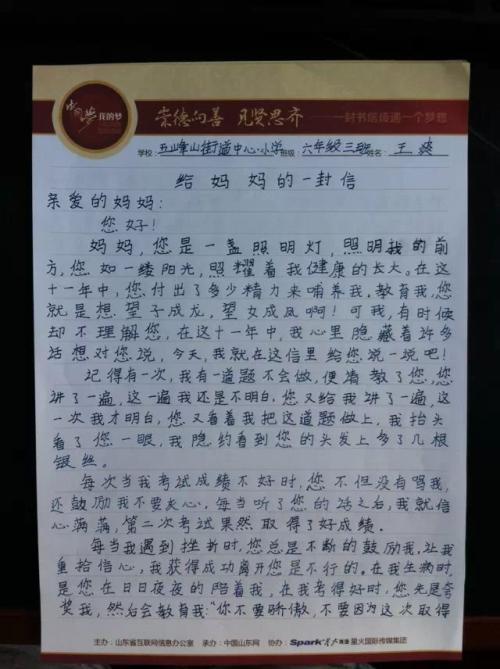 中国梦 我的梦
崇德向善 见贤思齐 一封书信传递一个梦想
学校:五峰山街道中心小学 班级:六年级三班 姓名:王
给妈妈的一封信
亲爱的妈妈:
您好!
妈妈,您是一盏照明灯,照明我的前
方,您如一缕阳光,照耀着我健康的长大。在这
十一年中,您付出了多少精力来哺养我,教育我,您
就是想望子成龙,望女成凤啊!可我,有时候
却不理解您,在这十一年中,我心里隐藏着许多
话想对您说,今天,我就在这信里给您说一说吧!
记得有一次,我有一道题不会做,便请教了您,您
讲了一遍,这一遍我还是不明白,您又给我讲了一遍,这
一次我才明白,您又看着我把这道题做上,我抬头
看了您一眼,我隐约看到您的头发上多了几根
银丝。
每次当我考试成绩不好时,您不但没有吗我,
还鼓励我不要灰心,每当听了您的话之后,我就信
心满满,第二次考试果然取得了好成绩。
每当我遇到挫折时,您总是不断的鼓励我,让我
重拾信心,我获得成功离开您是不行的,在我生病时,
是您在日日夜夜的陪着我,在我考得好时,您先是会
奖我,然后会教育我:“你不要骄傲,不要因为这次取得
主办:山东省互联网信息办公室 承办:中国山东网 协办:Spark 星火国际传媒集团